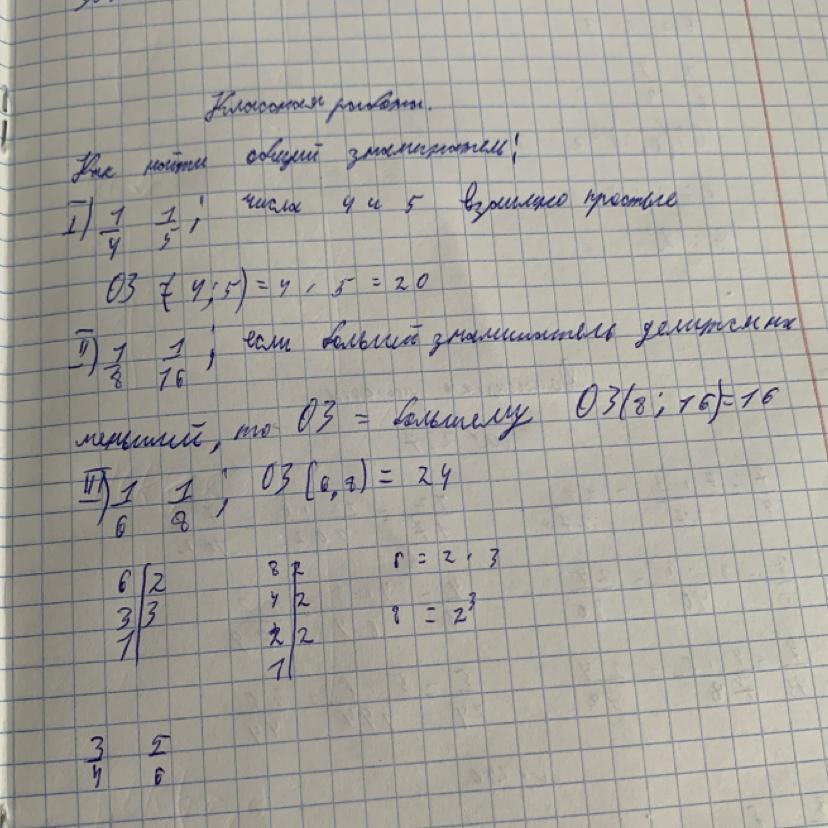 Классная работа.
Как найти общий знаменатель!
I) 1/4 1/5 ; числа 4 и 5 взаимно простые
ОЗ (4;5) = 4 · 5 = 20
II) 1/8 1/16 ; если больший знаменатель делится на
меньший, то ОЗ = большему ОЗ(8; 16)=16
III) 1/6 1/8 ; ОЗ (6,8) = 24
6|2 8|2 6 = 2 · 3
3|3 4|2 8 = 2³
1| 2|2
1|
3/4 5/6